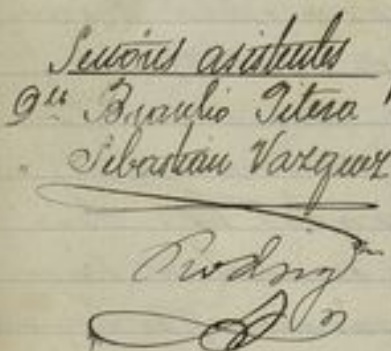 Señores asistentes
Dn Braulio Pitera
" Sebastian Vazquez
Rodrig